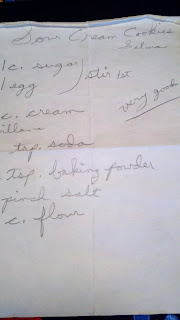 Sour Cream Cookies
Selma
1 c. sugar
1 egg
stir 1st
c. cream
very good
tsp. soda
Tsp. baking powder
pinch salt
c. flour